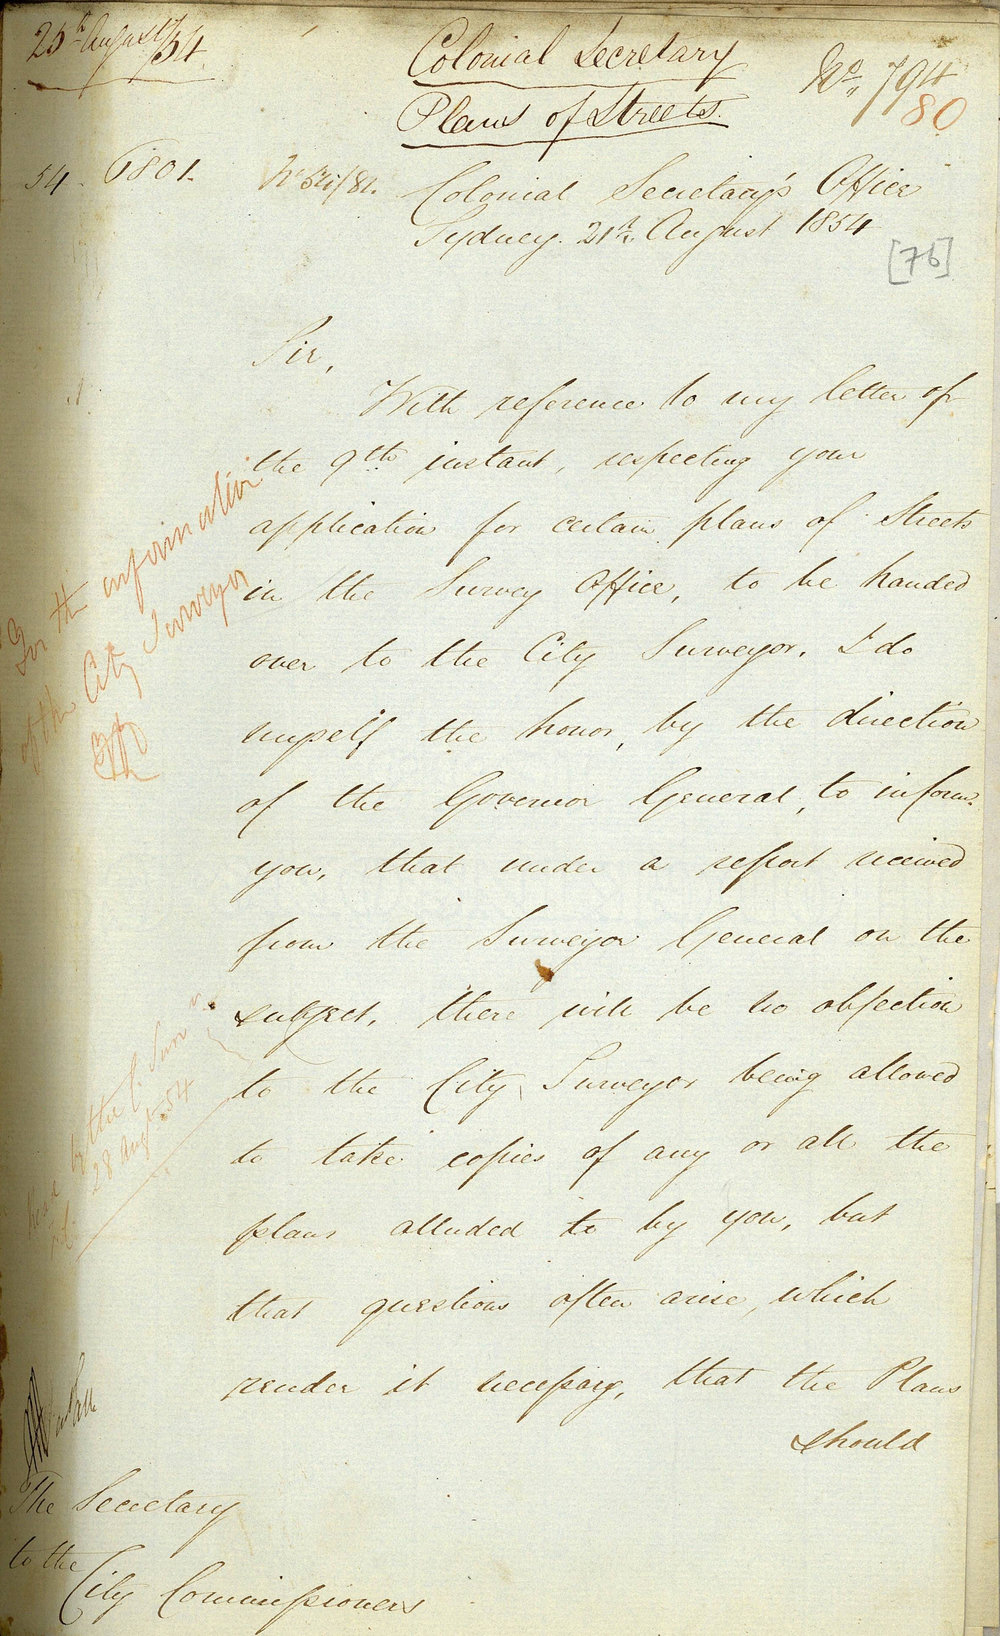 25th August/54
Colonial Secretary
No. 794
80
Plans of Streets.
54. 6801.
Colonial Secretary's Office
Sydney. 21st. August 1854
[76]
Sir,
With reference to my letter of
the 9th instant, respecting your
application for certain plans of Streets
in the Survey Office, to be handed
over to the City Surveyor, I do
myself the honor, by the direction
of the Governor General, to inform
you, that under a report received
from the Surveyor General on the
subject, there will be no objection
to the City Surveyor being allowed
to take copies of any or all the
plans alluded to by you, but
that questions often arise, which
render it necessary, that the Plans
should
For the information
of the City Surveyor
by the C. Sur
28 Augt 54
The Secretary
to the
City Commissioners